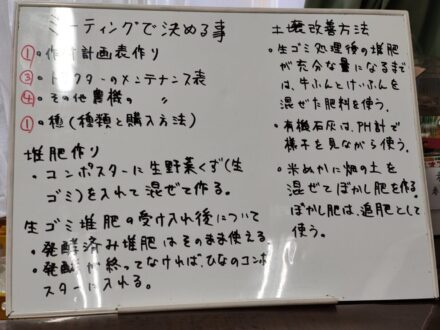 ミーティングで決める事
①・作付計画表作り
③・トラクターのメンテナンス表
④・その他農機の 〃
①・種(種類と購入方法)
堆肥作り
・コンポスターに生野菜くず(生
ゴミ)を入れて混ぜて作る。
生ゴミ堆肥の受け入れ後について
・発酵済み堆肥はそのまま使える。
・発酵が終ってなければ、ひなのコンポ
スターに入れる。
土壌改善方法
・生ゴミ処理後の堆肥
が充分な量になるまで
は、牛ふんとけいふんを
混ぜた肥料を使う。
・有機石灰は、PH計で
様子を見ながら使う。
・米ぬかに畑の土を
混ぜてぼかし肥を作る。
ぼかし肥は、追肥として
使う。